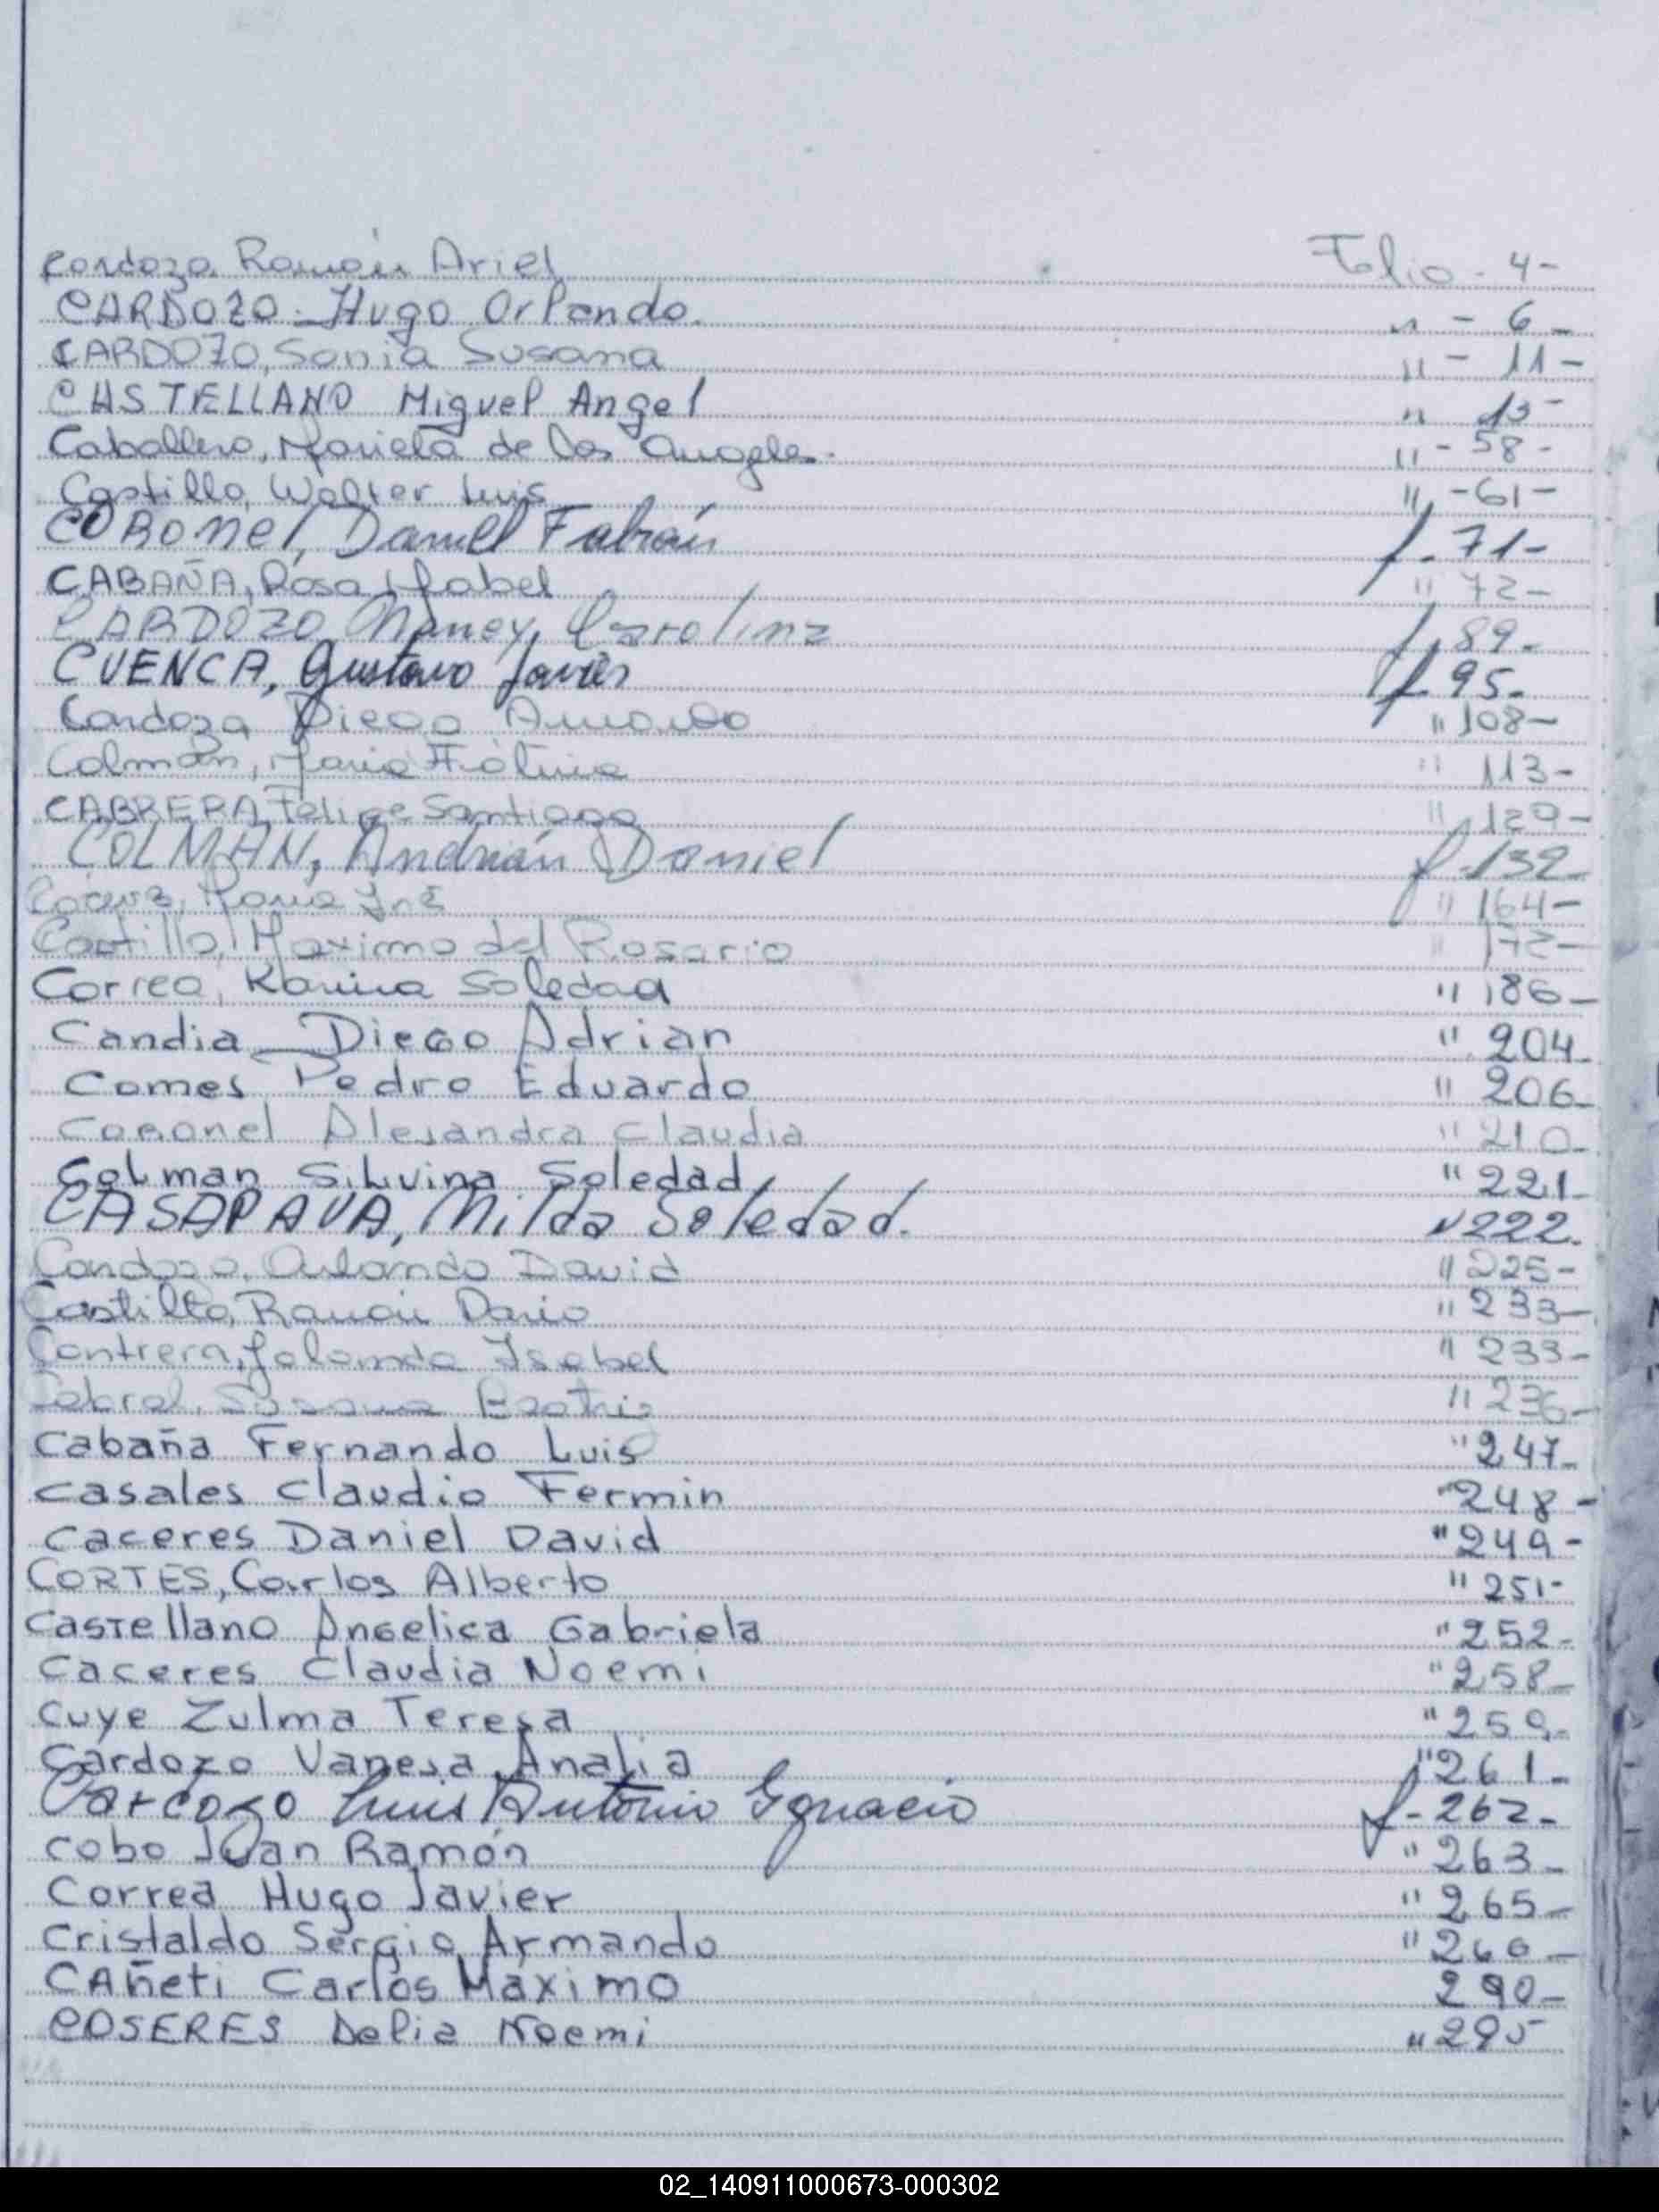 Cardozo, Ramón Ariel Folio - 4 -
CARDOZO - Hugo Orlando. " - 6 -
CARDOZO, Sonia Susana " - 11 -
CASTELLANO Miguel Angel " 13 -
Caballero, Mariela de los Angeles. " - 58 -
Castillo, Walter Luis " - 61 -
CORONEl, Daniel Fabián f. 71 -
CABAÑA, Rosa Isabel " 72 -
CARDOZO Nancy, Carolina f. 89 -
CUENCA, Gustavo Javier f. 95 -
Cardozo Diego Armando " 108 -
Colmán, Maria " 113 -
CABRERA, Felipe Santiago " 129 -
COLMAN, Andrián Daniel f - 132
Maria " 164 -
Castillo, Maximo del Rosario " 172 -
Correa, Karina Soledad " 186 -
Candia Diego Adrian " 204 -
Comes Pedro Eduardo " 206 -
Coronel Alejandra Claudia " 210 -
Colman Silvina Soledad " 221 -
CASAPAVA, Milda Soledad. " 222.
Cardozo, Orlando David " 225 -
Castillo, Ramón Dario " 233 -
Contrera, Yolanda Isabel " 233 -
Cabral, Susana Beatriz " 236 -
Cabaña Fernando Luis " 247 -
Casales Claudio Fermin " 248 -
Caceres Daniel David " 249 -
CORTES, Carlos Alberto " 251 -
Castellano Angelica Gabriela " 252 -
Caceres Claudia Noemi " 258 -
Cuye Zulma Teresa " 259 -
Cardozo Vanesa Analia " 261 -
Cardozo Luis Antonio Ignacio f - 262 -
Cobo Juan Ramón " 263 -
Correa Hugo Javier " 265 -
Cristaldo Sergio Armando " 266 -
CAñeti Carlos Máximo 290 -
COSERES Delia Noemi " 295
02_140911000673-000302